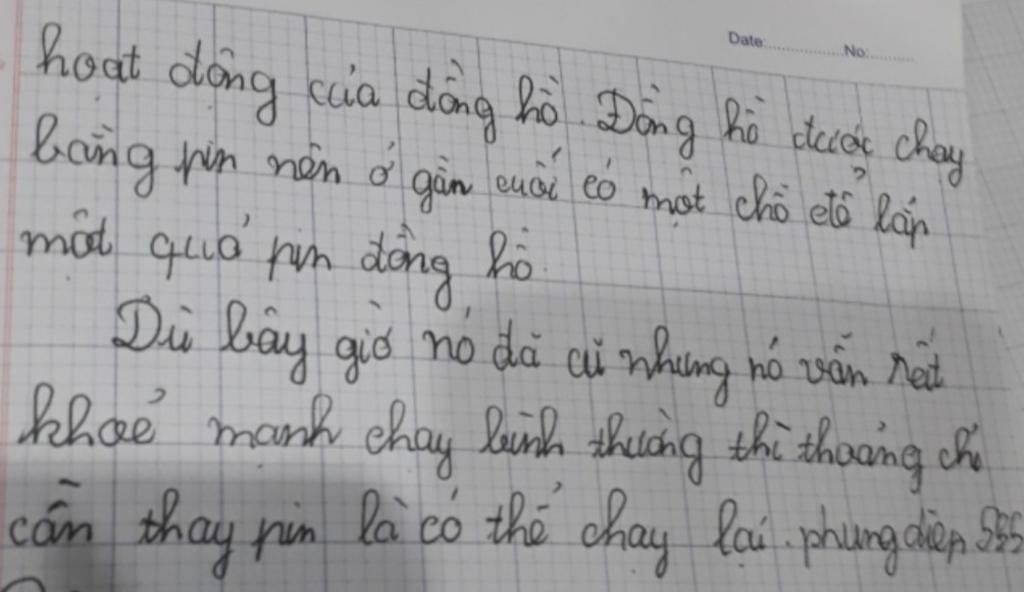 Date:............No:.........
hoạt động của đồng hồ. Đồng hồ được chạy
bằng pin nên ở gần cuối có một chỗ để lắp
một quả pin đồng hồ.
Dù bây giờ nó đã cũ nhưng nó vẫn rất
khoẻ mạnh chạy bình thường thi thoảng chỉ
cần thay pin là có thể chạy lại. phungdiep 555